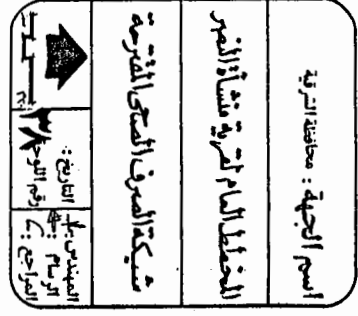 اسم الجهة : محافظة الشرقية
المخطط العام لقرية منشأة القصر
شبكة الصرف الصحى المقترحة
التاريخ :
رقم اللوحة
المهندس :
الرسام :
المراجع :